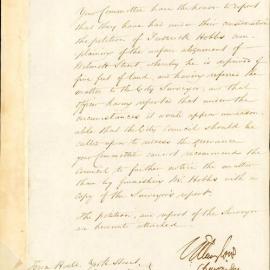 Your Committee have the honor to report
that they have had under their consideration
the petition of Frederick Hobbs com-
plaining of the unfair alignment of
Street whereby he is deprived of
five feet of land, and having referred the
matter to the City Surveyor, and that
officer having reported that under the
circumstances it would appear unreason-
able that the City Council should be
called upon to redress the grievance
your Committee cannot recommend the
Council to further notice the matter
than by furnishing Mr. Hobbs with a
copy of the Surveyor's report.
The petition, and report of the Surveyor
are herewith attached.
Chairman
Town Hall, York Street,